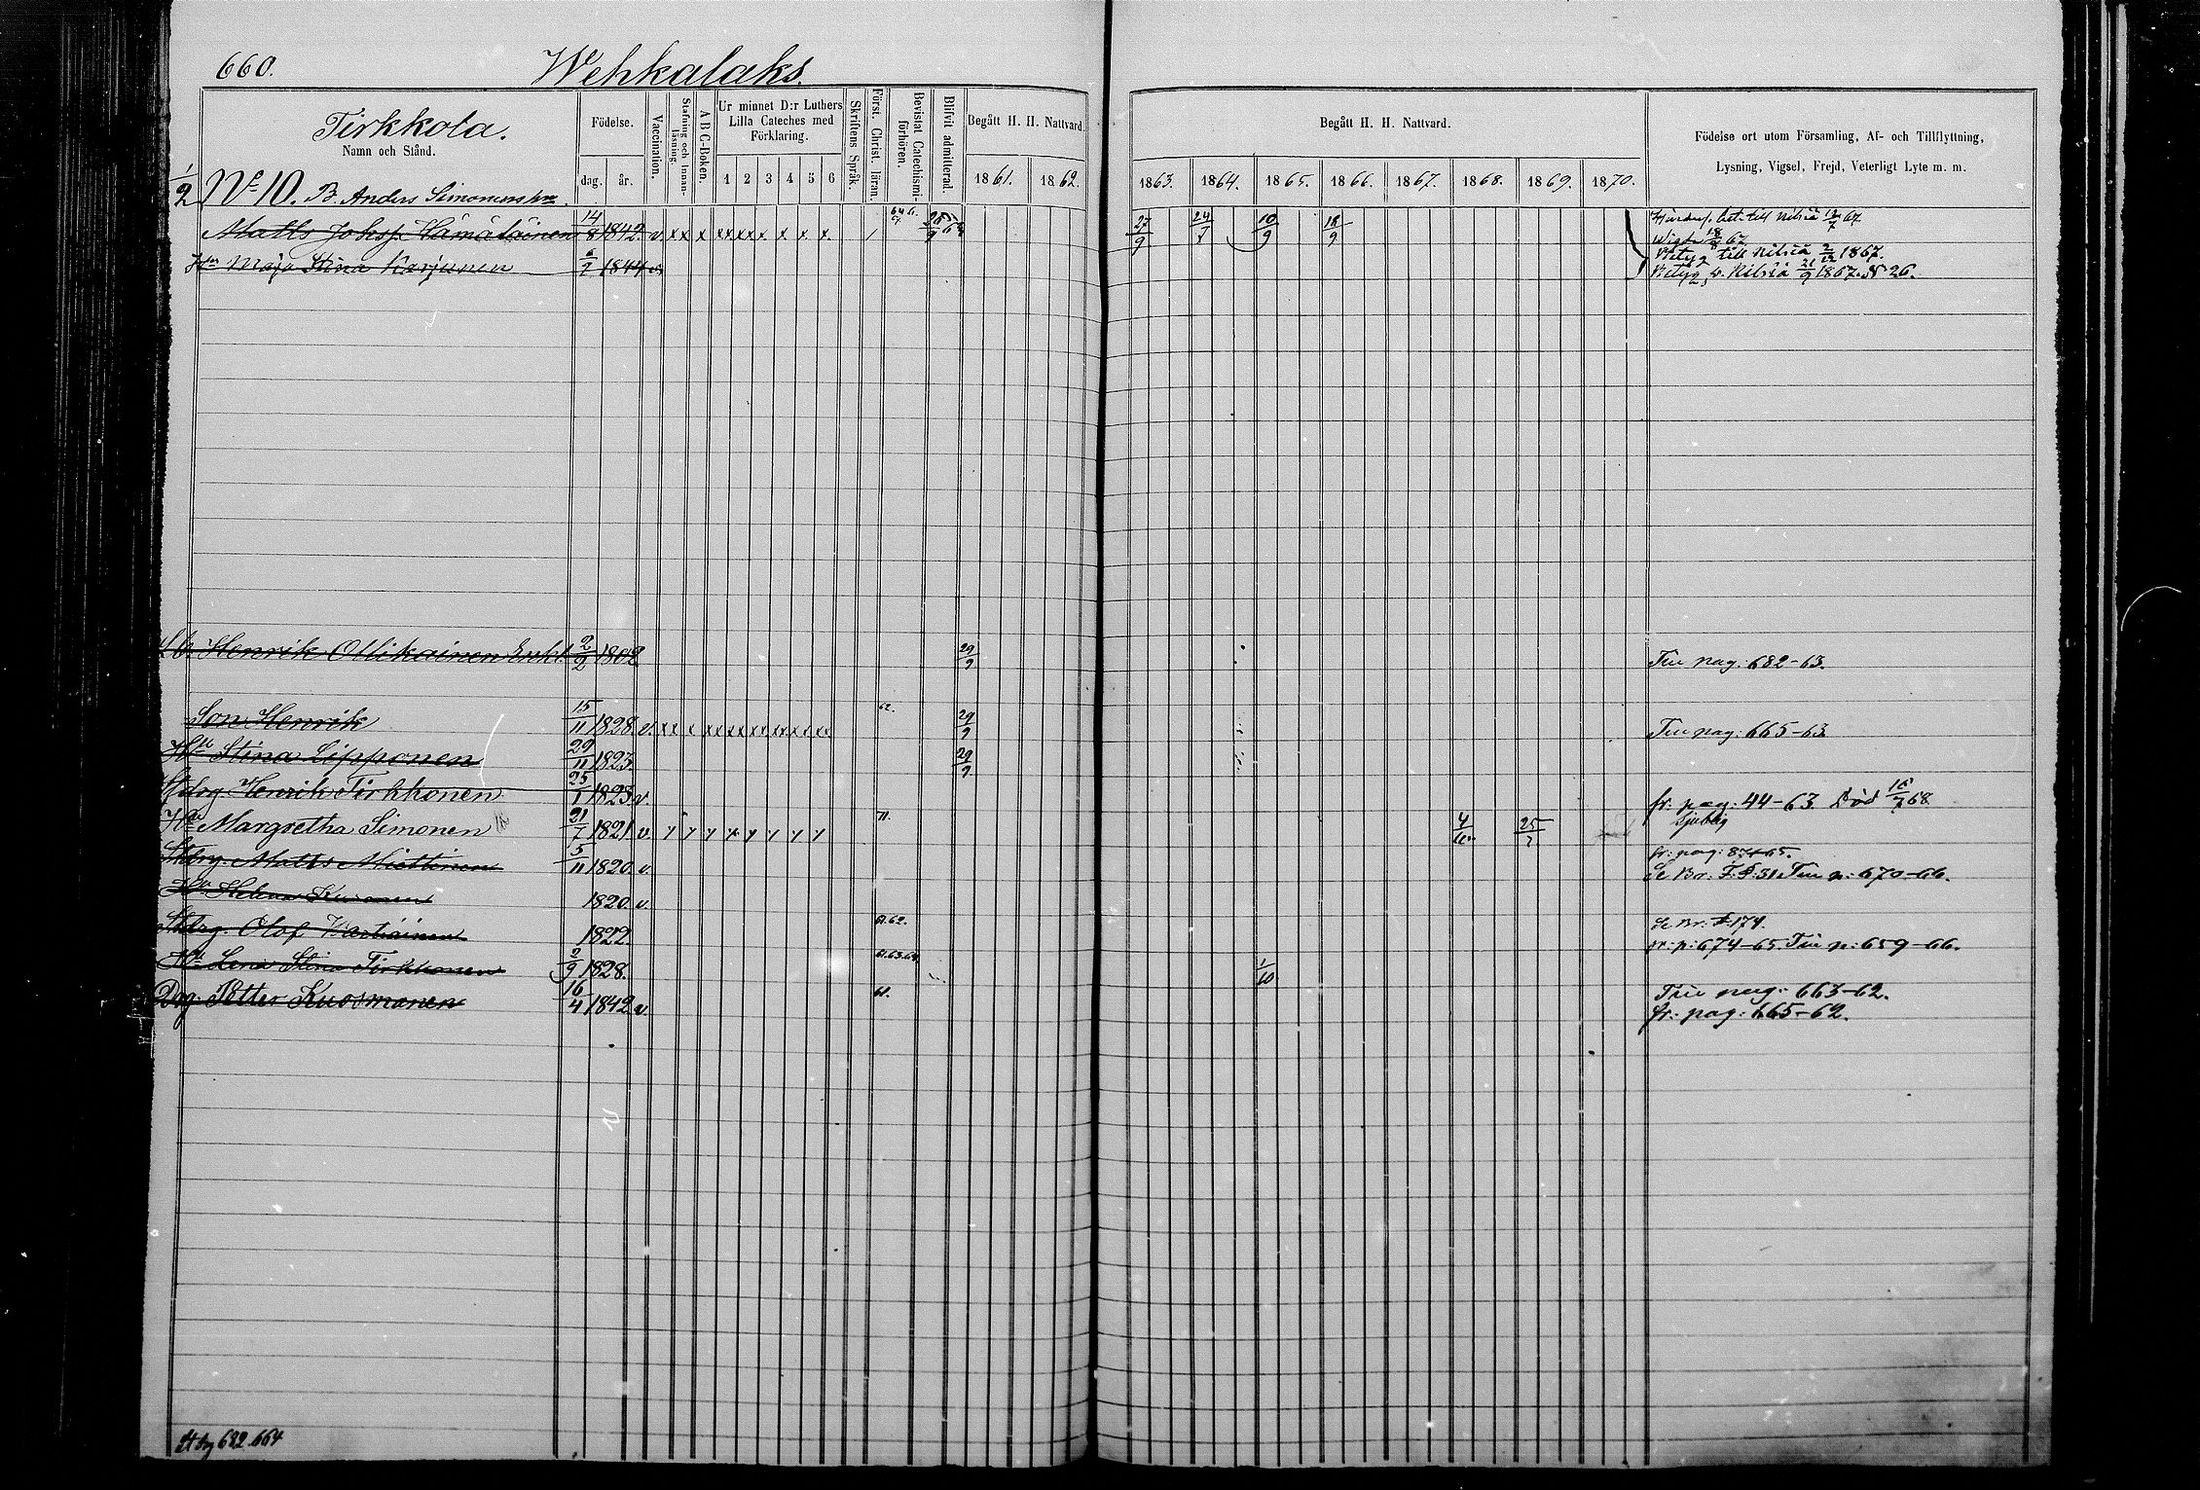 660. Wehkalaks.
Tirkkola.
Namn och Stånd.
Födelse.
dag. år.
Vaccination.
Stafning och Innan-läsning.
A B C-Boken.
Ur minnet D:r Luthers Lilla Cateches med Förklaring.
1 2 3 4 5 6
Skriftens Språk.
Först. Christ. läran.
Bevistat Catechismi-förhören.
Blifvit admitterad.
Begått H. H. Nattvard.
1861. 1862.
Begått H. H. Nattvard.
1863. 1864. 1865. 1866. 1867. 1868. 1869. 1870.
Födelse ort utom Församling, Af- och Tillflyttning,
Lysning, Vigsel, Frejd, Veterligt Lyte m. m.
1/2 No 10. B. Anders Simonens
Matts Hämäläinen 14/8 1842. v. x x x x x x x x x x x. 27/9 24/7 10/9 18/9 till Nilsiä 67
Wigde 18/8 67
Hu Maja Stina Karjunen 1844 Betyg till Nilsiä 1867.
Betyg fr. Nilsiä 1867. N 26.
Henrik Ollikainen Enkl. 2/2 1802 29/9 Tu pag: 682-63.
Son Henrik 15/11 1828. v. x x x x x x x x x x 62. 29/9 Tu pag: 665-63
Hu Stina Lipponen 29/11 1823. 29/9
Henrik Tirkkonen 25/1 1823 v. fr. pag: 44-63 Död 68
Hu Margretha Simonen 21/7 1821 v. 71. 25 Sjuklig
Matts Miettinen 5/11 1820. v. fr: pag: 87-65.
Tu p: 670-66.
Hu Helena 1820. v.
Olof 1822. 61.62. 174.
fr: p: 674-65. Tu p: 659-66.
Hu Lena Stina Tirkkonen 2/9 1828. 61.63.64. 1/10
Drg. Petter Kuosmanen 16/4 1842 v. 61. Tu pag: 663-62.
fr: pag: 665-62.
682. 664